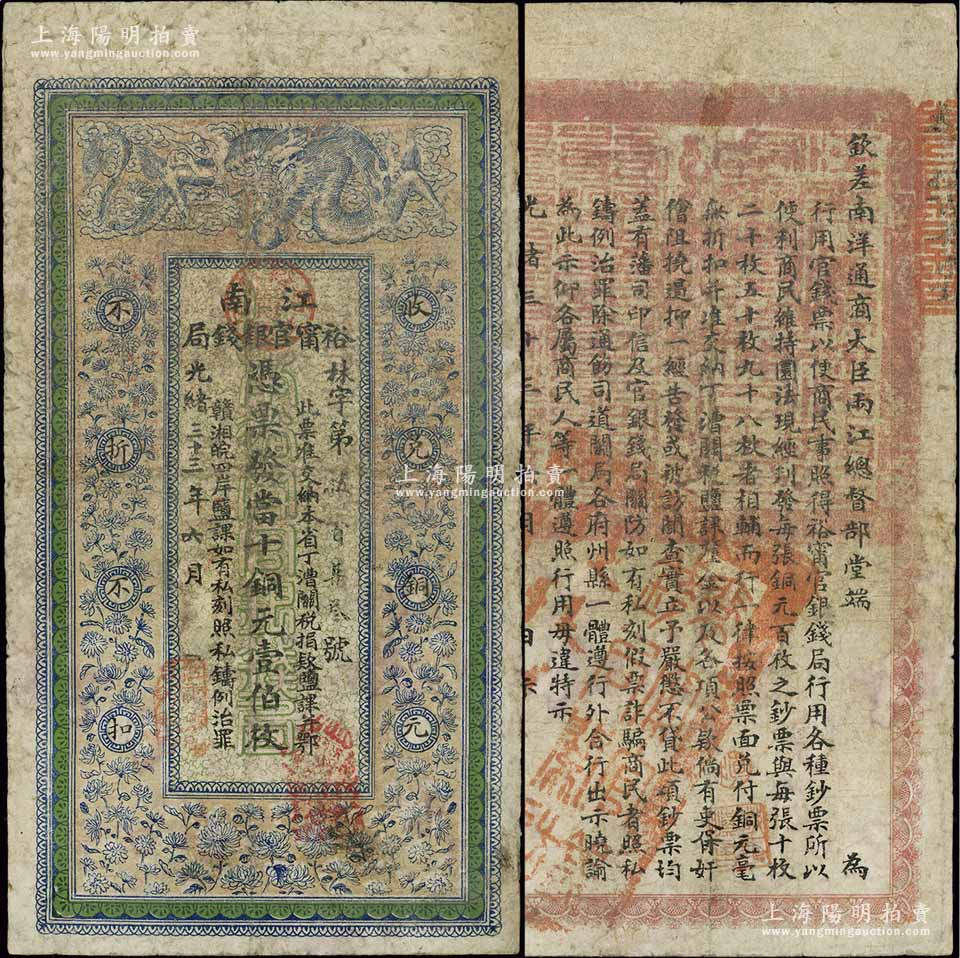 上海陽明拍賣
www.yangmingauction.com
江南
裕甯官銀錢局
林字第
號
憑票發當十銅元壹伯枚
此票准交納本省丁漕關稅捐款鹽課并鄂
贛湘皖四岸鹽課如有私刻照私鑄例治罪
光緒三十三年六月
收兌銅元
不折不扣
上海陽明拍賣
www.yangmingauction.com
欽差南洋通商大臣兩江總督部堂端
為
行用官錢票以便商民事照得裕甯官銀錢局行用各種鈔票所以
便利商民維持圜法現經刊發每張銅元百枚之鈔票與每張十枚
二十枚五十枚九十八枚者相輔而行一律按照票面兌付銅元毫
無折扣并准交納丁漕關稅鹽課厘金以及各項公款倘有吏胥奸
儈阻撓遏抑一經告發或被訪聞查實立予嚴懲不貸此項鈔票均
蓋有藩司印信及官銀錢局關防如有私刻假票詐騙商民者照私
鑄例治罪除通飭司道關局各府州縣一體遵行外合行出示曉諭
為此示仰各屬商民人等一體遵照行用毋違特示
光緒三十三年 月 日示
上海陽明拍賣
www.yangmingauction.com